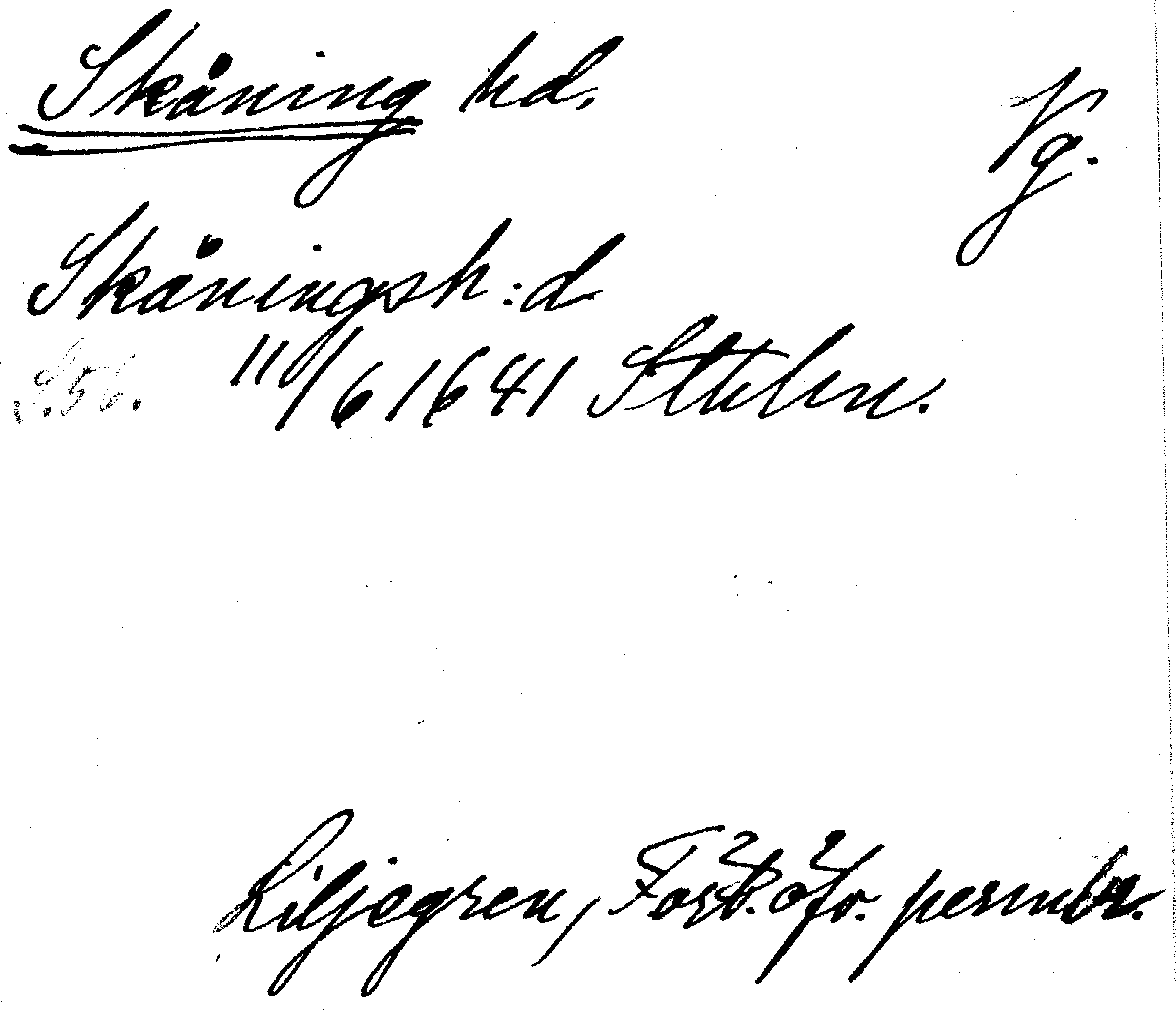 Skåning hd.
Vg.
Skåningsh:d
S. 56. 11/6 1641 Sthlm.
Liljegren, Fört. öfv. permbr.